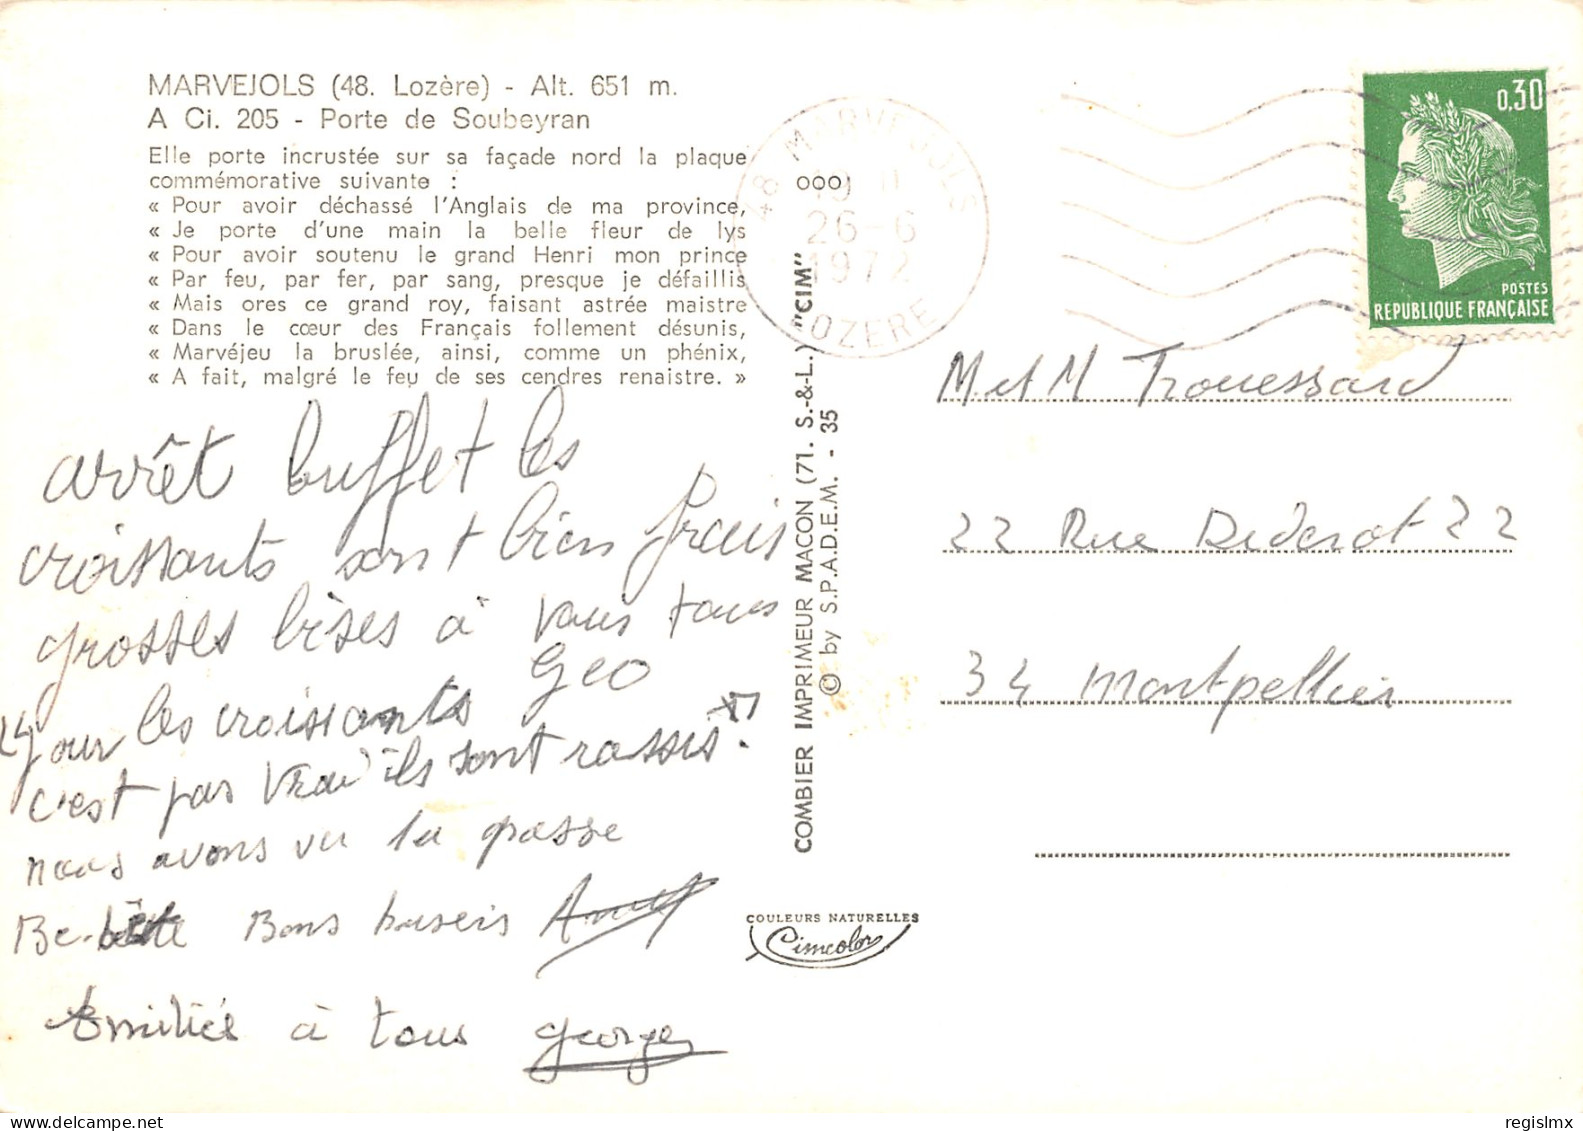 MARVEJOLS (48. Lozère) - Alt. 651 m.
A Ci. 205 - Porte de Soubeyran
Elle porte incrustée sur sa façade nord la plaque
commémorative suivante :
« Pour avoir déchassé l'Anglais de ma province,
« Je porte d'une main la belle fleur de lys
« Pour avoir soutenu le grand Henri mon prince
« Par feu, par fer, par sang, presque je défaillis
« Mais ores ce grand roy, faisant astrée maistre
« Dans le cœur des Français follement désunis,
« Marvéjeu la bruslée, ainsi, comme un phénix,
« A fait, malgré le feu de ses cendres renaistre. »
arrêt buffet les
croissants sont bien frais
grosses bises à vous tous
Geo
pour les croissants
c'est pas vrai ils sont rassis
nous avons vu la
Bons
Amitiés à tous Georges
COMBIER IMPRIMEUR MACON (71. S.-&-L.) "CIM"
© by S.P.A.D.E.M. - 35
COULEURS NATURELLES
Cimcolor
000
48 MARVEJOLS
26-6
1972
LOZERE
0,30
POSTES
REPUBLIQUE FRANÇAISE
M et M Trouessard
22 Rue Diderot 22
34 Montpellier
regislmx